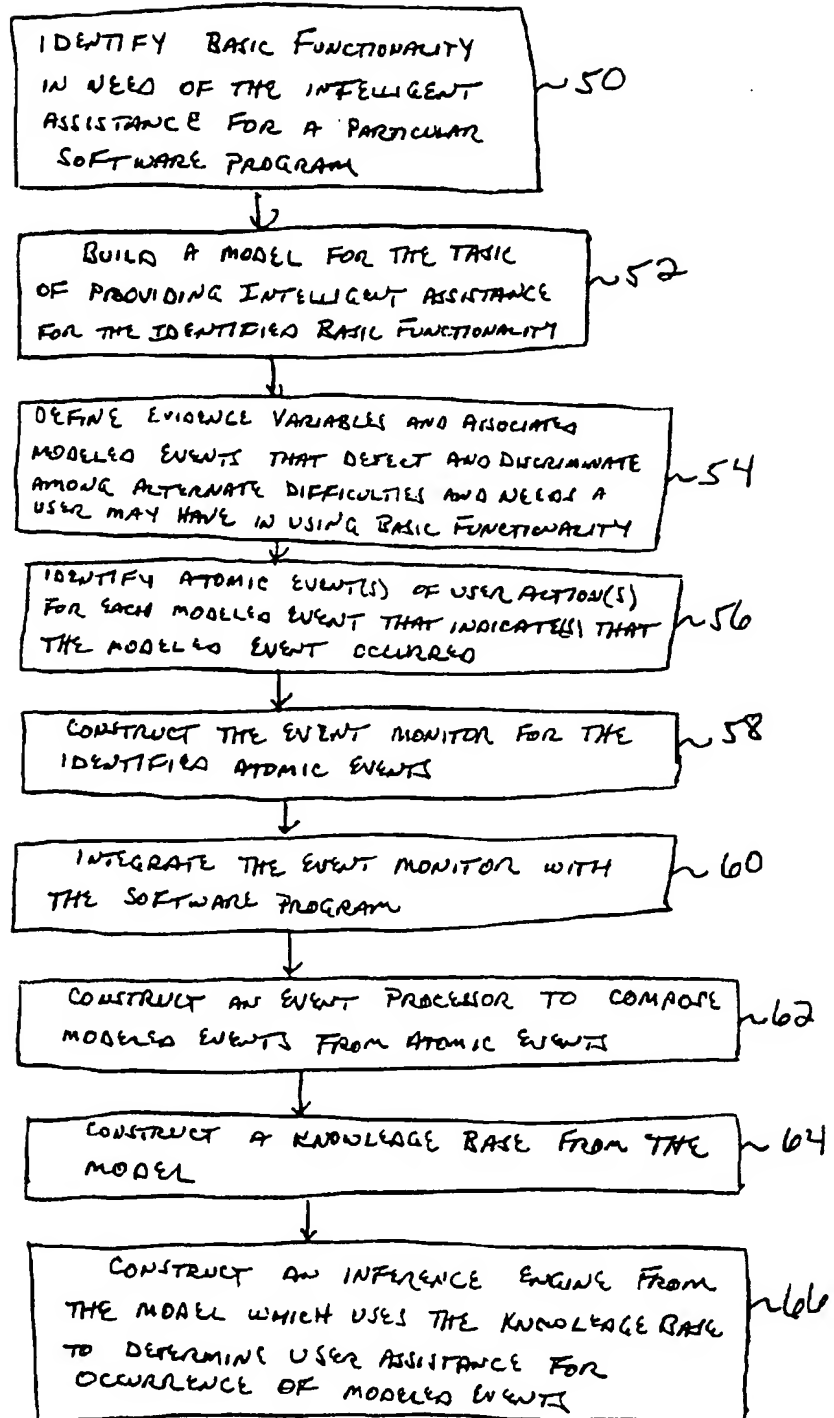 IDENTIFY BASIC FUNCTIONALITY
IN NEED OF THE INTELLIGENT
ASSISTANCE FOR A PARTICULAR
SOFTWARE PROGRAM
50
BUILD A MODEL FOR THE TASK
OF PROVIDING INTELLIGENT ASSISTANCE
FOR THE IDENTIFIED BASIC FUNCTIONALITY
52
DEFINE EVIDENCE VARIABLES AND ASSOCIATED
MODELED EVENTS THAT DETECT AND DISCRIMINATE
AMONG ALTERNATE DIFFICULTIES AND NEEDS A
USER MAY HAVE IN USING BASIC FUNCTIONALITY
54
IDENTIFY ATOMIC EVENT(S) OF USER ACTION(S)
FOR EACH MODELED EVENT THAT INDICATE(S) THAT
THE MODELED EVENT OCCURRED
56
CONSTRUCT THE EVENT MONITOR FOR THE
IDENTIFIED ATOMIC EVENTS
58
INTEGRATE THE EVENT MONITOR WITH
THE SOFTWARE PROGRAM
60
CONSTRUCT AN EVENT PROCESSOR TO COMPOSE
MODELED EVENTS FROM ATOMIC EVENTS
62
CONSTRUCT A KNOWLEDGE BASE FROM THE
MODEL
64
CONSTRUCT AN INFERENCE ENGINE FROM
THE MODEL WHICH USES THE KNOWLEAGE BASE
TO DETERMINE USER ASSISTANCE FOR
OCCURRENCE OF MODELED EVENTS
66